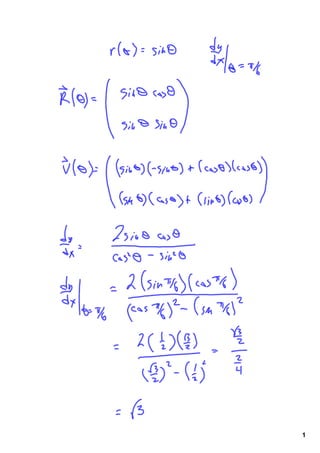 r(θ) = sinθ    dy/dx|θ=π/6
R⃗(θ) = ( sinθ cosθ
sinθ sinθ )
V⃗(θ) = ( (sinθ)(-sinθ) + (cosθ)(cosθ)
(sin θ)(cosθ) + (sinθ)(cosθ) )
dy/dx = 2 sinθ cosθ / cos²θ - sin²θ
dy/dx|θ=π/6 = 2(sin π/6)(cos π/6) / (cos π/6)² - (sin π/6)²
= 2(1/2)(√3/2) / (√3/2)² - (1/2)² = √3/2 / 2/4
= √3
1